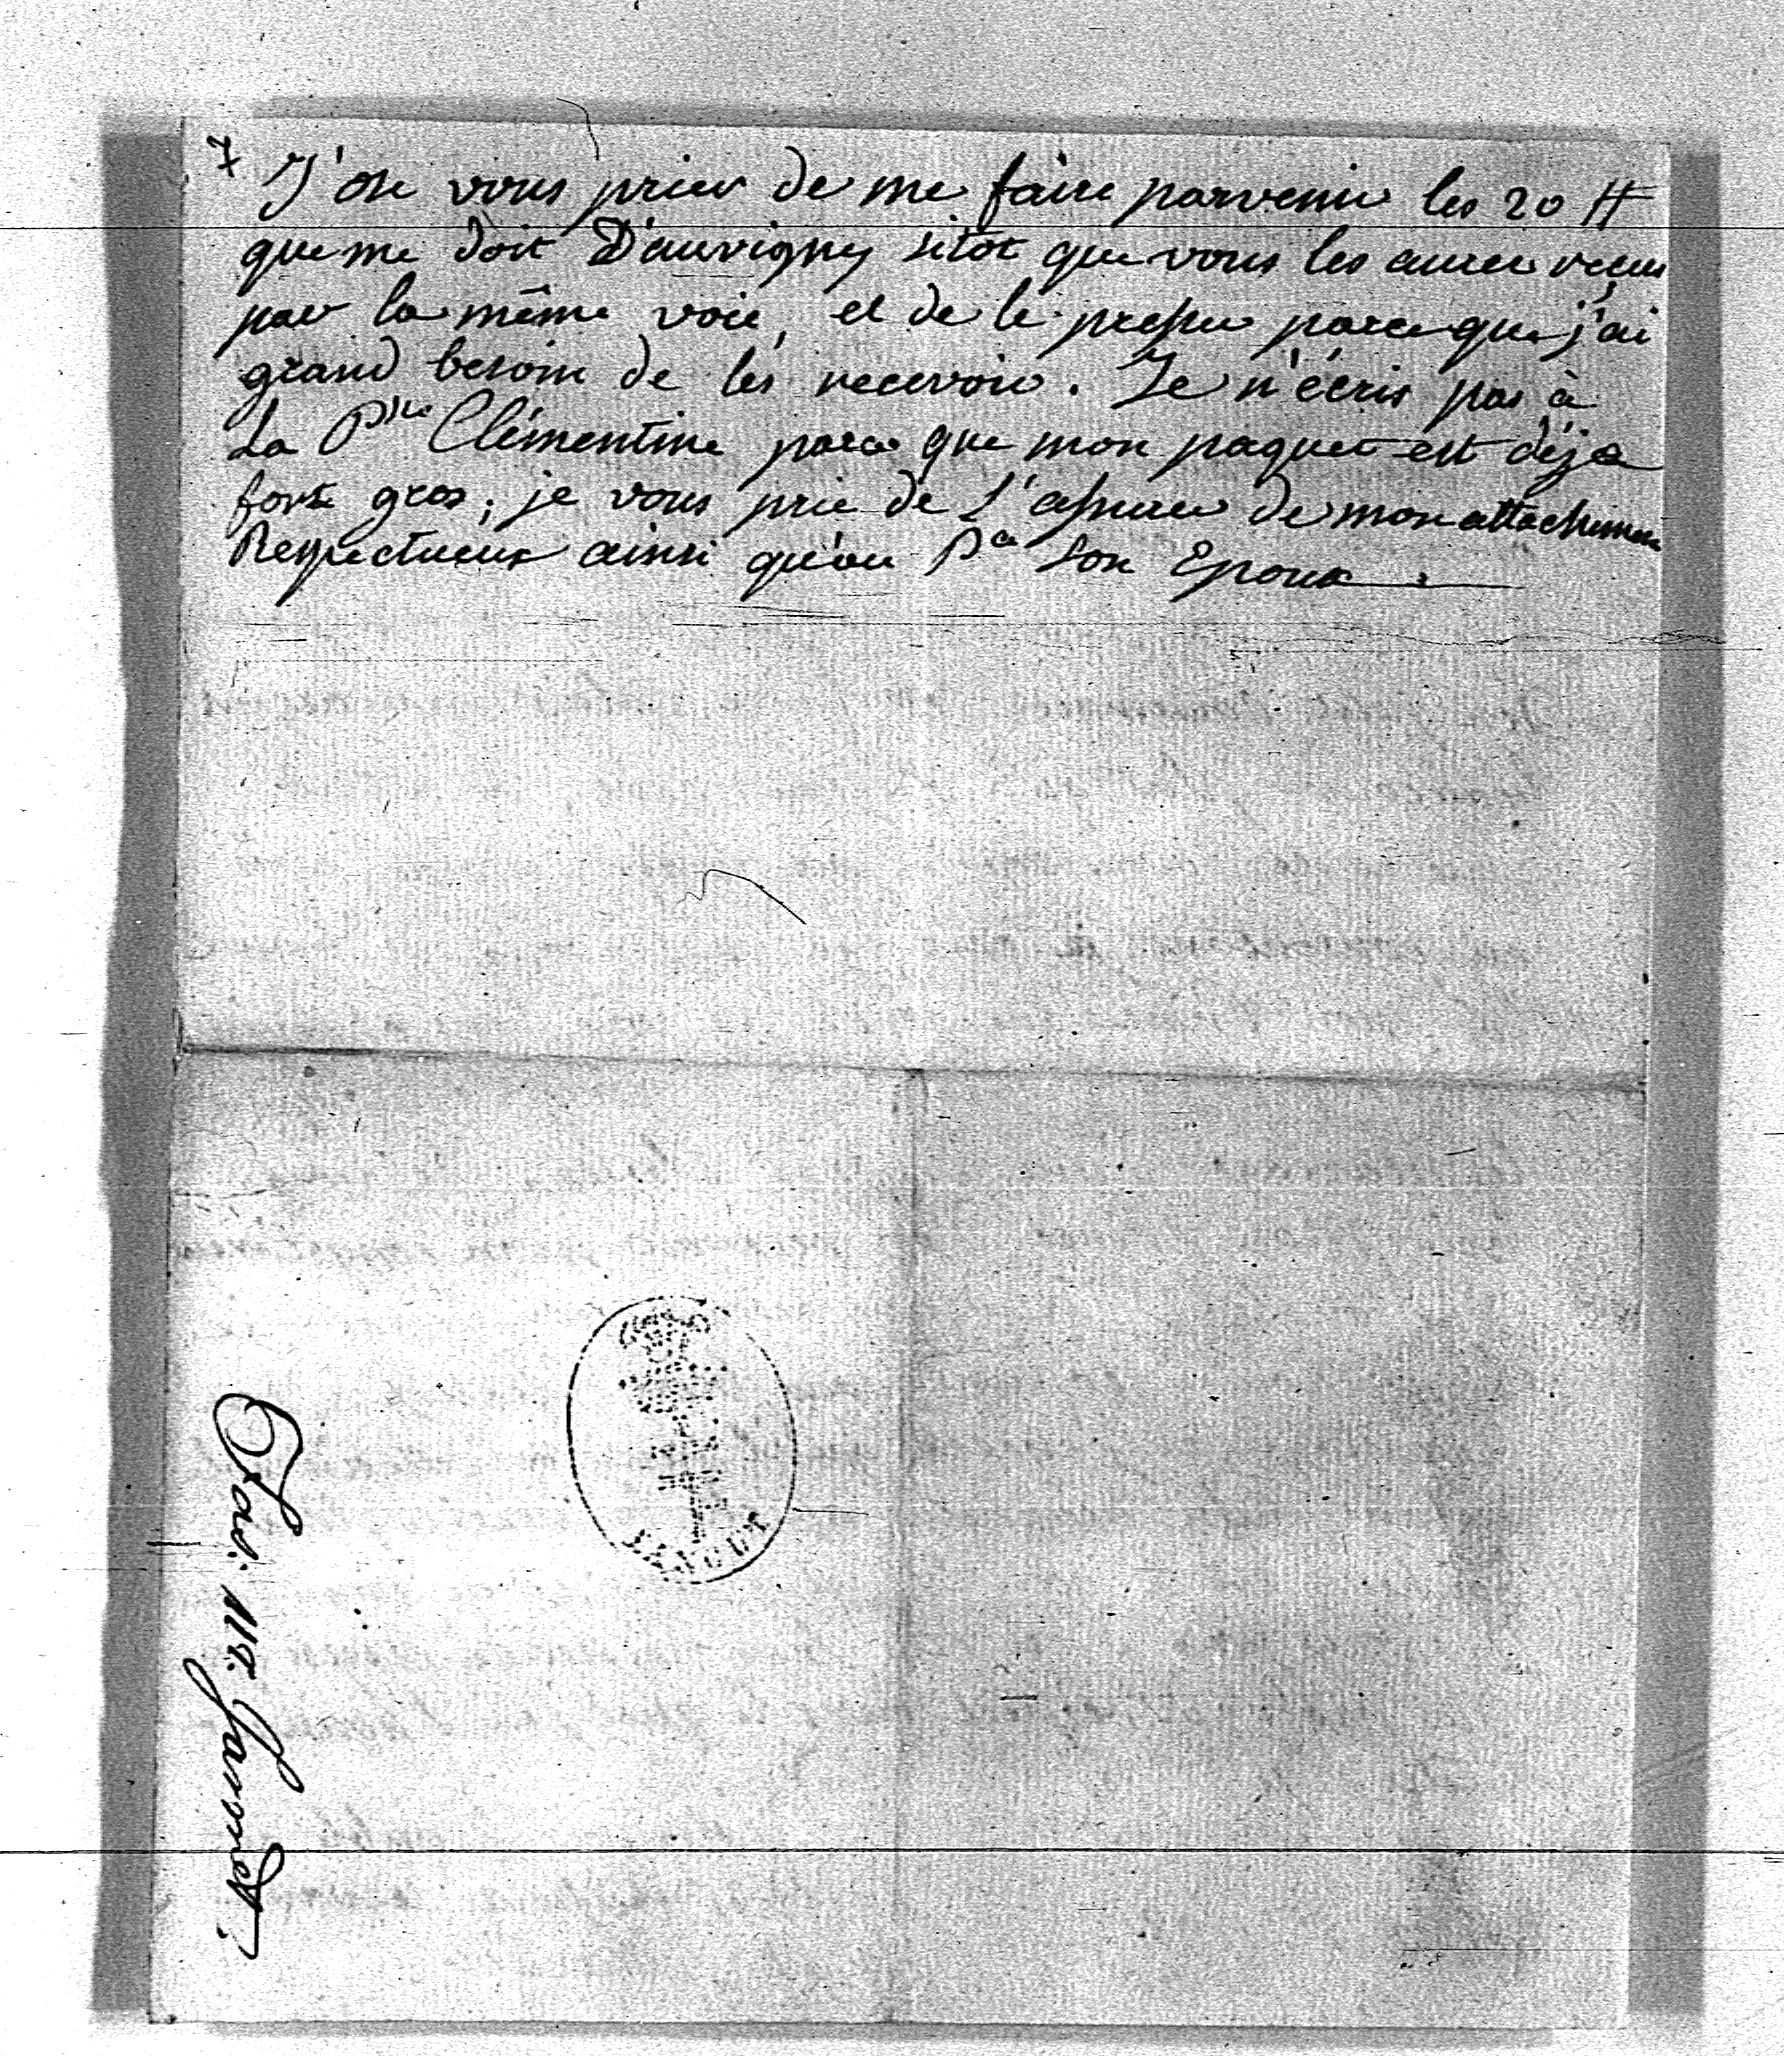 7 J'ose vous prier de me faire parvenir les 20 ₶
que me doit D'auvigny sitôt que vous les aurez reçus
par la même voie, et de le presser parce que j'ai
grand besoin de les recevoir. Je n'écris pas à
La P^sse Clémentine parce que mon paquet est déja
fort gros; je vous prie de l'assurer de mon attachement
Respectueux ainsi qu'au P^ce son Epoux.